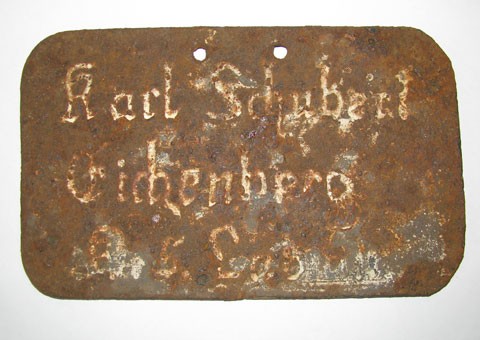 Karl Schubert
Eichenberg
A. b.